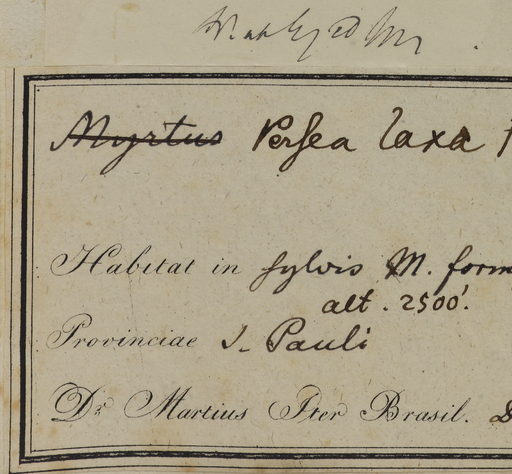 Myrtus Persea laxa
Habitat in sylvis M. form
alt. 2500'.
Provinciae S. Pauli
Dr. Martius Iter Brasil.